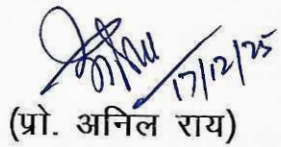 17/12/25
(प्रो. अनिल राय)